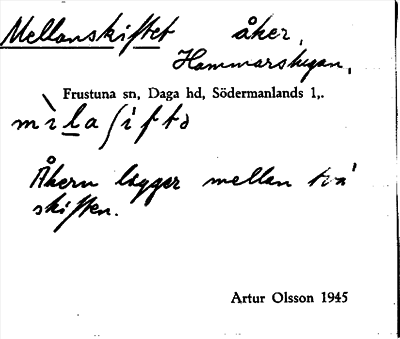 Mellanskiftet åker,
Hammarstugan,
Frustuna sn, Daga hd, Södermanlands l,.
mìlaʃiftə
Åkern ligger mellan två
skiften.
Artur Olsson 1945